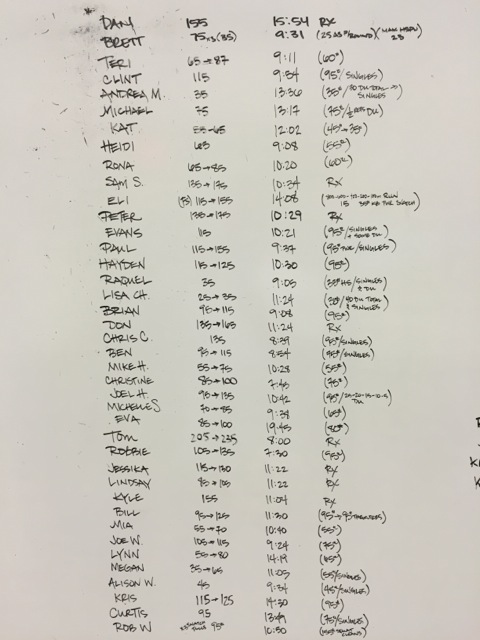 DANY 155 15:54 RX
BRETT 75 (85) 9:31 (25 /ROUND) (MAX HSPU 28
TERI 65→87 9:11 (60#)
CLINT 115 9:54 (95#/SINGLES)
ANDREA M. 35 13:36 (35#/ 80 DU TOTAL → SINGLES)
MICHAEL 75 13:17 (75#/ DU)
KAT 55→65 12:02 (45#→35#)
HEIDI 63 9:08 (55#)
RONA 65→85 10:20 (60#)
SAM S. 135→175 10:34 RX
ELI 115→155 14:08 RUN
PETER 135→175 10:29 RX
EVANS 115 10:21 (95#/SINGLES + SOME DU)
PAUL 115→155 9:37 (95# /SINGLES)
HAYDEN 115→125 10:30 (95#)
RAQUEL 35 9:05 (35# /SINGLES DU)
LISA CH. 25→35 11:24 (35#/ 40 DU TOTAL & SINGLES)
BRIAN 95→115 9:08 (95#)
DON 135→165 11:24 RX
CHRIS C. 135 8:39 (95#/SINGLES)
BEN 95→115 8:54 (95#/SINGLES)
MIKE H. 55→75 10:28 (55#)
CHRISTINE 85→100 7:45 (75#)
JOEL H. 95→135 10:42 (95#/ 25-20-15-10-5 DU)
MICHELLE S 70→85 9:38 (65#)
EVA 85→100 19:45 (80#)
TOM 205→235 8:00 RX
ROBBIE 105→135 7:30 (95#)
JESSIKA 115→130 11:22 RX
LINDSAY 95→105 11:22 RX
KYLE 155 11:04 RX
BILL 95→125 11:30 (95#→ THRUSTERS)
MIA 55→70 10:40 (55#)
JOE W. 105→115 9:24 (75#)
LYNN 50→80 14:19 (65#)
MEGAN 35→65 11:05 (55/SINGLES)
ALISON W. 45 9:34 (45#/SINGLES)
KRIS 115→125 14:30 (95#)
CURTIS 95 13:49 (75#/SINGLES)
ROB W 95# 10:50